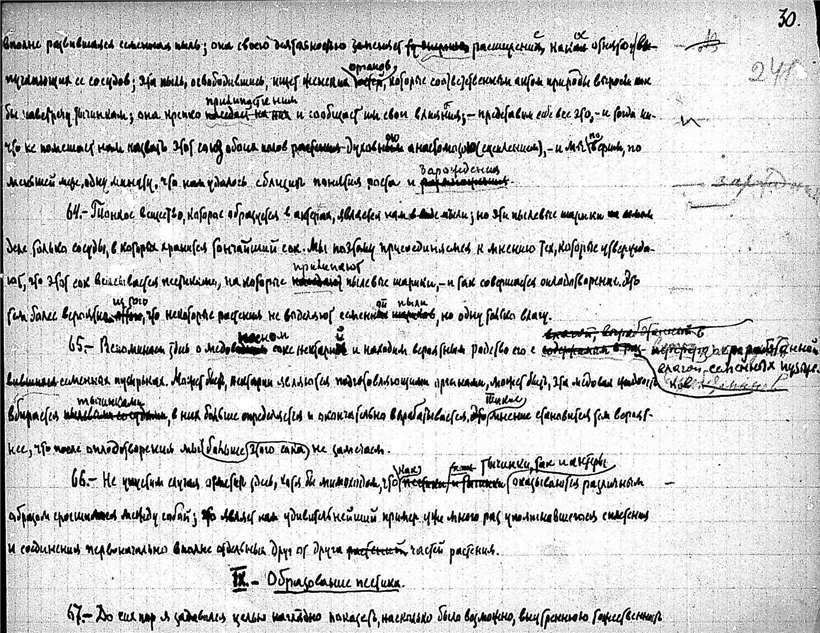 30.
вполне развившаяся семенная пыль; она своею деятельностью заменяет расширение, на какое обнаружи вы-
241
пускающих ее сосудов; эта пыль, освободившись, ищет женских органов, которые соответственным актом природы выросли как
бы навстречу тычинкам; она крепко прилипает к ним и сообщает им свои влияния; – представим себе все это, – и тогда ни-
что не помешает нам назвать этот союз обоих полов духовным анастомозом (сцеплением), – и мы поверим, по
меньшей мере, одну минуту, что нам удалось сблизить понятия роста и зарождения.
64. – Тонкое вещество, которое образуется в антерах, является нам в виде пыли; но эти пылевые шарики
деле только сосуды, в которых хранится тончайший сок. Мы поэтому присоединяемся к мнению тех, которые утвержда-
ют, что этот сок всасывается пестиками, на которые прилипают пылевые шарики, – и так совершается оплодотворение. Это
тем более вероятно из того, что некоторые растения не выделяют семенной пыли, но одну только влагу.
65. – Вспоминаем здесь о медовом соке нектарий и находим вероятным родство его с переработанной
влагой семенных пузыр-
ков
Может быть, нектарии являются подготовляющими органами, может быть, эта медовая жидкость
вбирается тычинками, в них больше определяется и окончательно вырабатывается, такое мнение становится тем вероят-
нее, что после оплодотворения мы больше этого сока не замечаем.
66. – Не упустим случая отметить здесь, хотя бы мимоходом, что как тычинки, так и антеры оказываются различным
образом сросшимися между собой; это являет нам удивительнейший пример уже много раз упоминавшегося сплетения
и соединения первоначально вполне отдельных друг от друга частей растения.
IX. – Образование пестика.
67. – До сих пор я задавался целью наглядно показать, насколько было возможно, внутреннюю тождественность